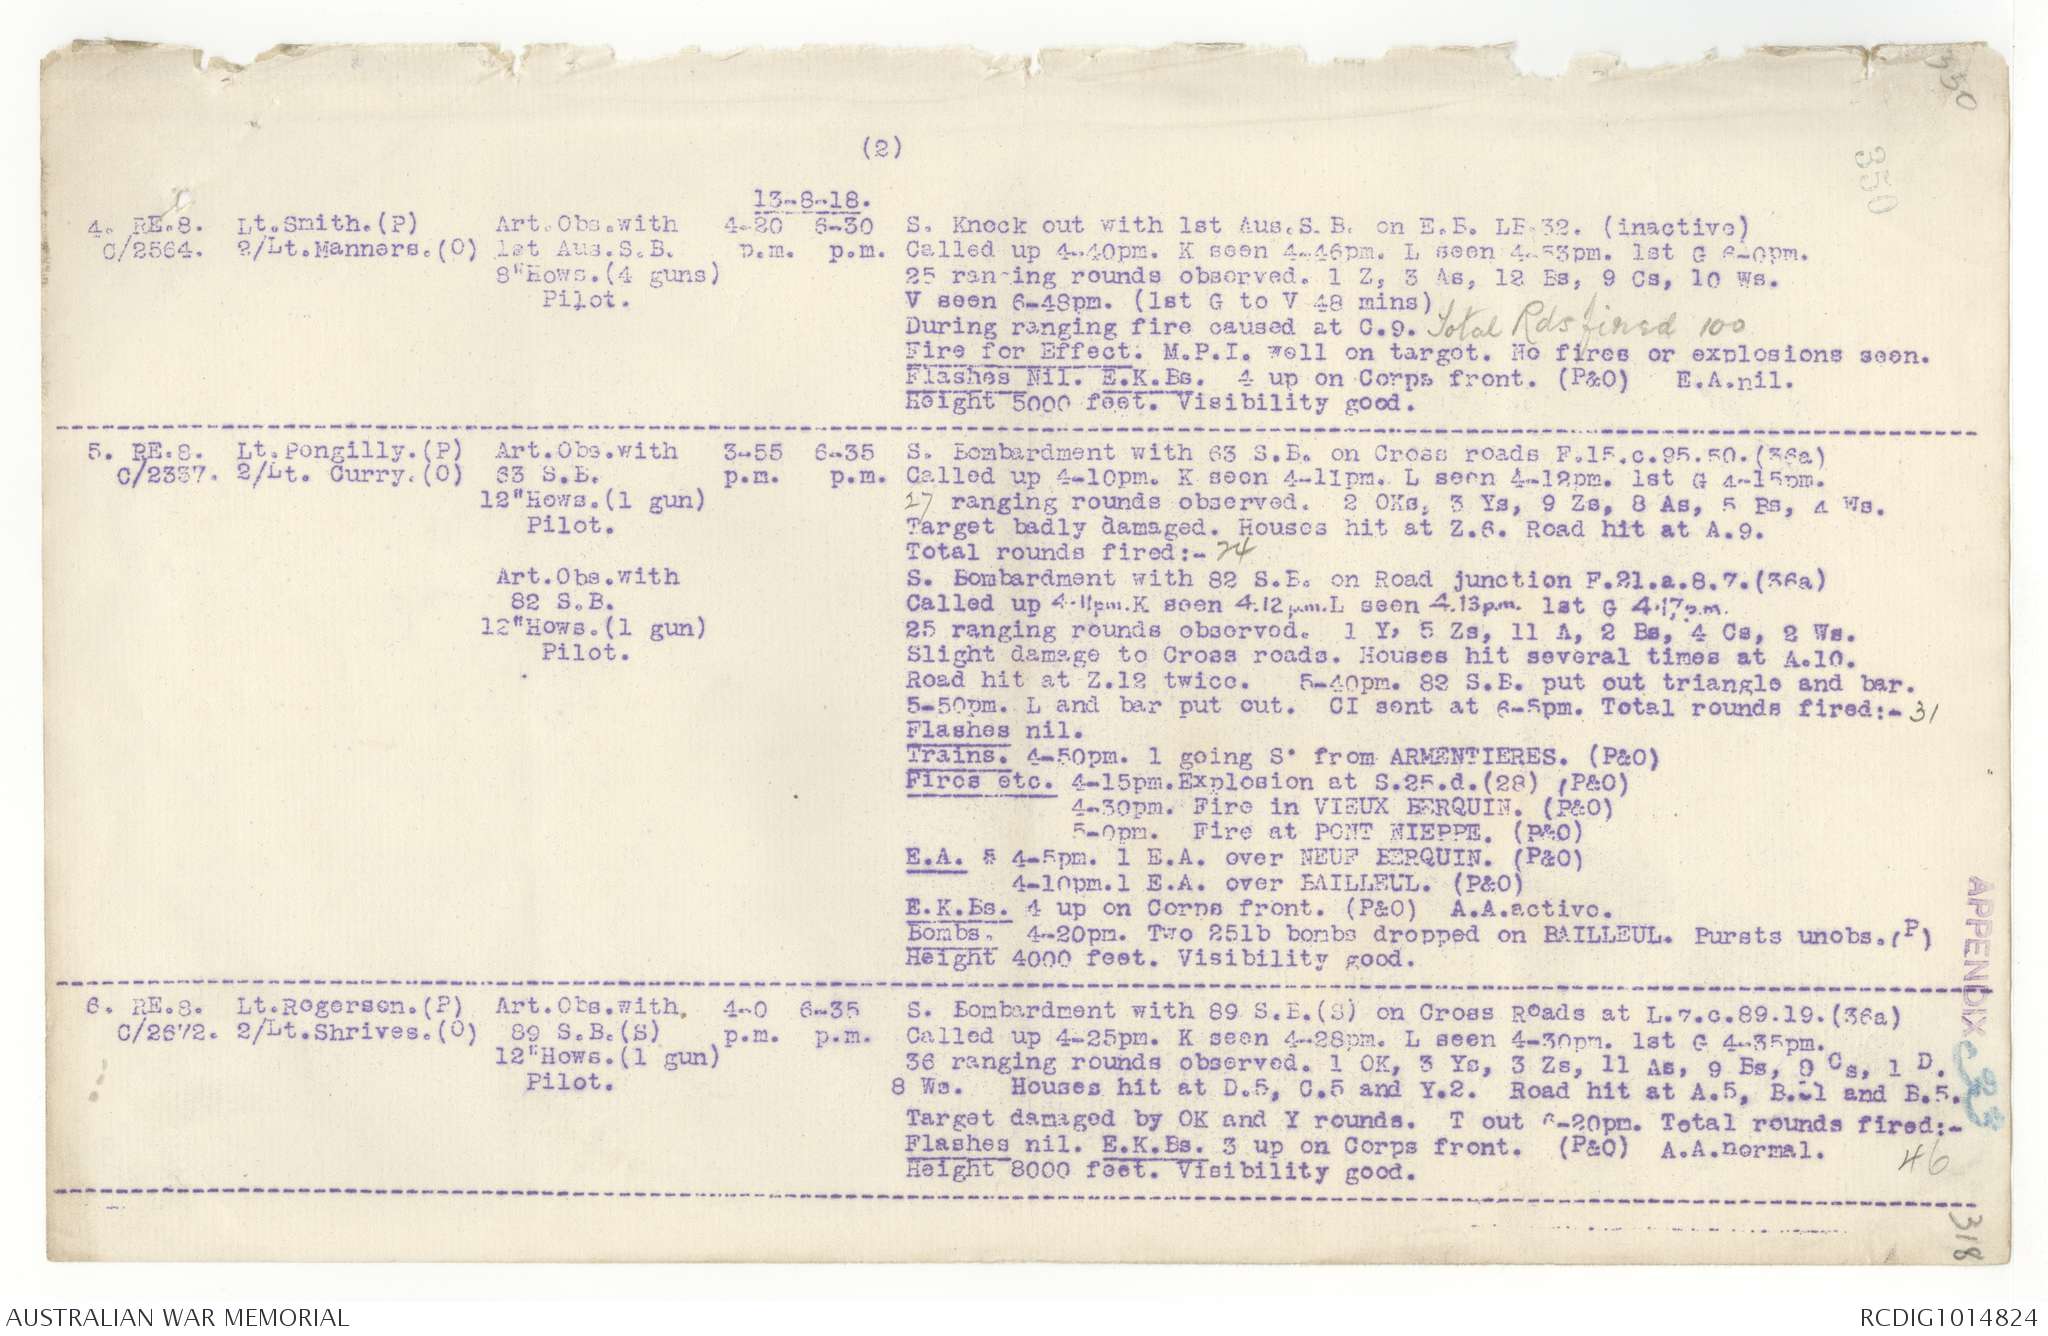 330
350
(2)
13-8-18.
4. RE.8. Lt.Smith.(P) Art.Obs.with 4-20 6-30 S. Knock out with 1st Aus.S.B. on E.B. LE.32. (inactive)
C/2564. 2/Lt.Manners.(O) 1st Aus.S.B. p.m. p.m. Called up 4-40pm. K seen 4-46pm. L seen 4-53pm. 1st G 6-0pm.
8"Hows.(4 guns) 25 ranging rounds observed. 1 Z, 3 As, 12 Bs, 9 Cs, 10 Ws.
Pilot. V seen 6-48pm. (1st G to V 48 mins)
During ranging fire caused at C.9. Total Rds fired 100
Fire for Effect. M.P.I. well on target. No fires or explosions seen.
Flashes Nil. E.K.Bs. 4 up on Corps front. (P&O) E.A.nil.
Height 5000 feet. Visibility good.
5. RE.8. Lt.Pongilly.(P) Art.Obs.with 3-55 6-35 S. Bombardment with 63 S.B. on Cross roads F.15.c.95.50.(36a)
C/2337. 2/Lt. Curry.(O) 63 S.B. p.m. p.m. Called up 4-10pm. K seen 4-11pm. L seen 4-12pm. 1st G 4-15pm.
12"Hows.(1 gun) 27 ranging rounds observed. 2 OKs, 3 Ys, 9 Zs, 8 As, 5 Bs, 4 Ws.
Pilot. Target badly damaged. Houses hit at Z.6. Road hit at A.9.
Total rounds fired:- 24
Art.Obs.with S. Bombardment with 82 S.B. on Road junction F.21.a.8.7.(36a)
82 S.B. Called up 4.11pm.K seen 4.12pm.L seen 4.13p.m. 1st G 4.17p.m.
12"Hows.(1 gun) 25 ranging rounds observed. 1 Y, 5 Zs, 11 A, 2 Bs, 4 Cs, 2 Ws.
Pilot. Slight damage to Cross roads. Houses hit several times at A.10.
Road hit at Z.12 twice. 5-40pm. 82 S.B. put out triangle and bar.
5-50pm. L and bar put out. CI sent at 6-5pm. Total rounds fired:- 31
Flashes nil.
Trains. 4-50pm. 1 going S. from ARMENTIERES. (P&O)
Fires etc. 4-15pm.Explosion at S.25.d.(28) (P&O)
4-30pm. Fire in VIEUX BERQUIN. (P&O)
5-0pm. Fire at PONT NIEPPE. (P&O)
E.A. 4-5pm. 1 E.A. over NEUF BERQUIN. (P&O)
4-10pm.1 E.A. over BAILLEUL. (P&O)
E.K.Bs. 4 up on Corps front. (P&O) A.A.active.
Bombs. 4-20pm. Two 25lb bombs dropped on BAILLEUL. Bursts unobs.(P)
Height 4000 feet. Visibility good.
6. RE.8. Lt.Rogerson.(P) Art.Obs.with, 4-0 6-35 S. Bombardment with 89 S.B.(S) on Cross Roads at L.7.c.89.19.(36a)
C/2672. 2/Lt.Shrives.(O) 89 S.B.(S) p.m. p.m. Called up 4-25pm. K seen 4-28pm. L seen 4-30pm. 1st G 4-35pm.
12"Hows.(1 gun) 36 ranging rounds observed. 1 OK, 3 Ys, 3 Zs, 11 As, 9 Bs, 9 Cs, 1 D.
Pilot. 8 Ws. Houses hit at D.5, C.5 and Y.2. Road hit at A.5, B.1 and B.5.
Target damaged by OK and Y rounds. T out 6-20pm. Total rounds fired:-
Flashes nil. E.K.Bs. 3 up on Corps front. (P&O) A.A.normal. 46
Height 8000 feet. Visibility good.
APPENDIX
318
AUSTRALIAN WAR MEMORIAL RCDIG1014824